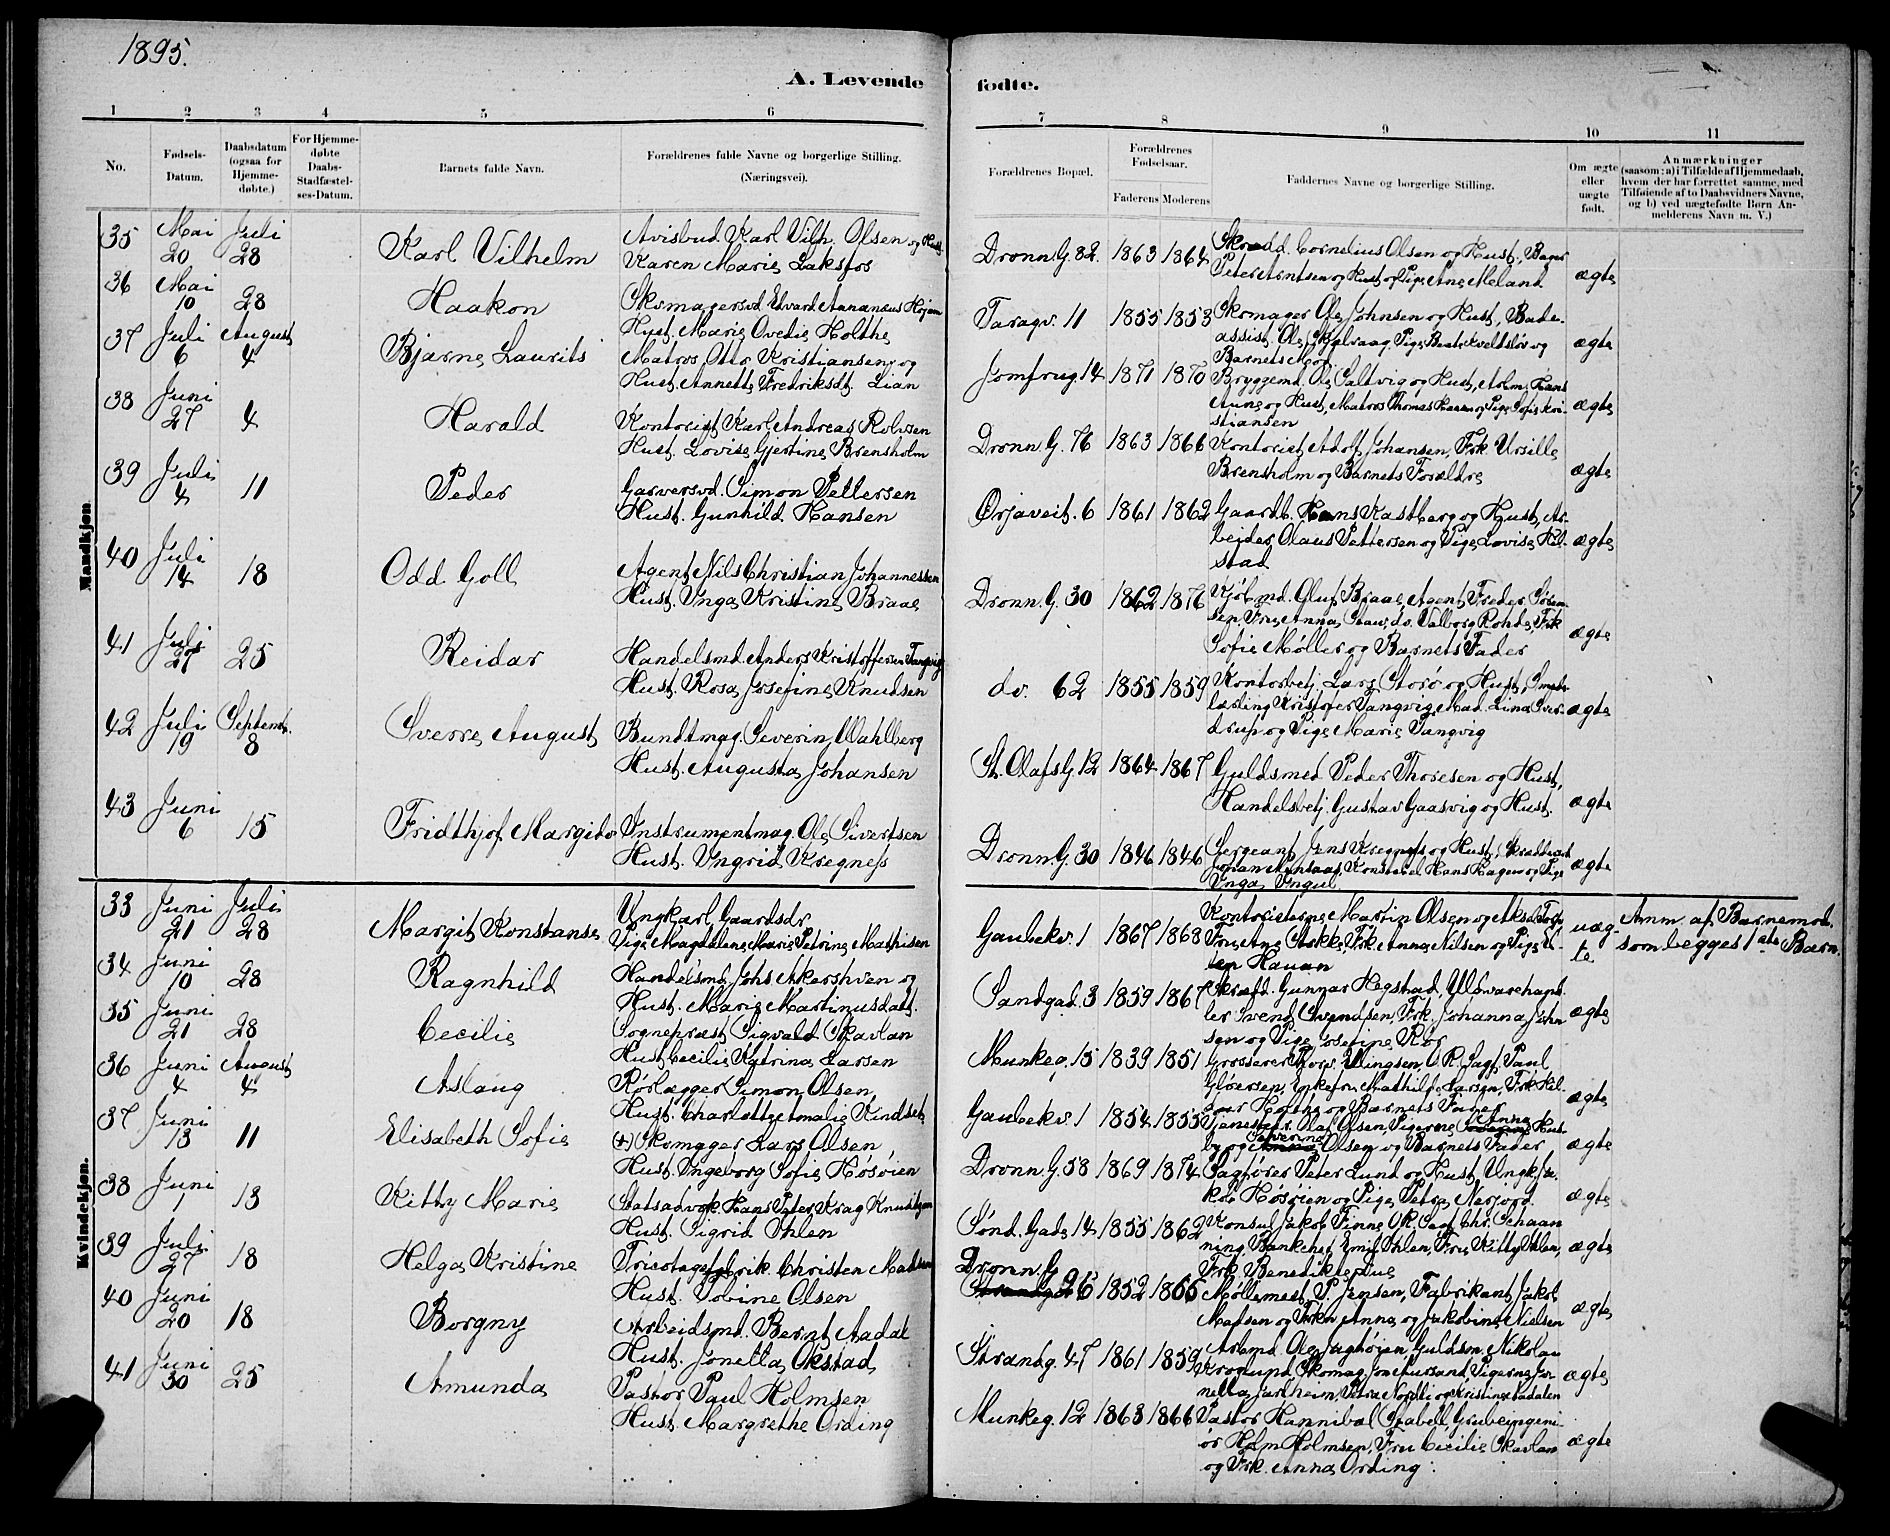 1895.
A. Levende
1 2 3 4 5 6
No.
Fødsels-Datum.
Daabsdatum (ogsaa for Hjemmedøbte.)
For Hjemmedøbte Daabs-Stadfæstelses-Datum.
Barnets fulde Navn.
Forældrenes fulde Navne og borgerlige Stilling. (Næringsvei).
Mandkjøn
35 Mai 20 Juli 28 Karl Vilhelm Avisbud Karl Vilh. Olsen og Hust.
Karen Marie Laksfos
36 Mai 10 28 Haakon Skomagersvd. Edvard
Hust. Marie Ovedie Holthe
37 Juli 6 August 4 Bjarne Laurits Matros Otto Kristiansen og
Hust. Annette Fredriksdt. Lian
38 Juni 27 4 Harald Kontorist Karl Andreas Rolvsen
Hust. Lovise Gjertine Brensholm
39 Juli 4 11 Peder Garversvd. Simon Pettersen
Hust. Gunhild Hansen
40 Juli 14 18 Odd Goll Agent Nils Christian Johannessen
Hust. Inga Kristine Braae
41 Juli 27 25 Reidar Handelsmd. Anders Kristoffersen Tangvig
Hust. Rosa Josefine Knudsen
42 Juli 19 Septembr. 8 Sverre August Bundtmag. Severin Wahlberg
Hust. Augusta Johansen
43 Juni 6 15 Fridthjof Margido Instrumentmag. Ole Sivertsen
Hust. Ingrid Kregness
Kvindekjøn.
33 Juni 21 Juli 28 Margit Konstanse Ungkarl, Gaardsdr.
Pige Magdalene Marie Petrine Mathisen
34 Juni 10 28 Ragnhild Handelsmd. Johs. Akershven og
Hust. Marie Martinusdatt.
35 Juni 21 28 Cecilie Sognepræst Sigvald Skavlan
Hust. Cecilie Katrina Larsen
36 Juni 4 August 4 Aslaug Rørlægger Simon Olsen,
Hust. Charlotte Amalie Kindseth
37 Juni 13 11 Elisabeth Sofie (+) Skomager Lars Olsen
Hust. Ingeborg Sofie Hosøien
38 Juni 1 13 Kitty Marie Statsadvok. Hans Peter Krag Knudtzon
Hust. Sigrid Ihlen
39 Juli 27 18 Helga Kristine Tricotagefabrik. Christen Madsen
Hust. Tobine Olsen
40 Juni 20 18 Borgny Arbeidsmd. Bernt Aadal
Hust. Jonetta Okstad
41 Juni 30 25 Amunda Pastor Paul Holmsen
Hust. Margrethe Ording
fødte.
7 8 9 10 11
Forældrenes Bopæl.
Forældrenes Fødselsaar.
Faderens Moderens
Faddernes Navne og borgerlige Stilling.
Om ægte eller uægte født.
Anmærkninger (saasom: a) i Tilfælde af Hjemmedaab, hvem der har forrettet samme, med Tilføiende af to Daabsvidners Navne, og b) ved uægtefødte Børn Anmelderens Navn m. V.)
Dronn. G. 82 1863 1864 Skrædd. Cornelius Olsen og Hust., Bager
Peter Arntsen og Hust. og Pige Ane Meland ægte
Taragv. 11 1855 1853 Skomager Ole Johnsen og Hust, Bade-
assist. Ole Skjelvaag, Pige og
Barnets Mor ægte
Jomfrug. 14 1871 1870 Bryggemd. Ole Saltvig og Hust, Aolm. Hans
Aune og Hust, Matros Thomas og Pige Sofie Kri-
stiansen ægte
Dronn. G. 76 1863 1866 Kontorist Adolf Johansen, Frk. Ursille
Brensholm og Barnets Forældre ægte
Ørjaveit. 6 1861 1862 Gaardb. Hans Kastberg og Hust, Ar-
beider Olaus Pettersen og Pige Lovise Hel-
stad ægte
Dronn. G. 30 1862 1876 Kjøbmd. Oluf Braae, Agent Feder Søren-
sen, Fru Anna Staw, do. Valborg Rohde, Frk
Sofie Møller og Barnets Fader ægte
do. 62 1855 1859 Kontorbetj. Lars Storø og Hust, Smede-
lærling Kristofer Tangvig, Mad. Lina Sver-
drup og Pige Marie Tangvig ægte
St. Olafs G. 12 1864 1867 Guldsmed Peder Thoresen og Hust,
Handelsbetj. Gustav Gaasvig og Hust. ægte
Dronn. G. 30 1846 1846 Sergeant Jens Kregness og Hust,
Konstabel Hans Hagen og Pige
Inga Ingul ægte
Gaubekv. 1 1867 1868 Kontoristerne Martin Olsen og
Fru Ane Aske, Frk. Anna Nilsen og Pige El-
len Hauan uægte Anm. af Barnemod.
som begges 1ste Barn.
Sandgad. 3 1859 1867 Skrædd. Gunnar Hegstad, Uldvarehand-
ler Svend Svendsen, Frk. Johanna John-
sen og Pige Josefine Rør ægte
Munkeg. 15 1839 1851 Grosserer Ellingsen, O. R. Sagf. Paul
Gløersen, Enkefru Mathilde Larsen, Frk. Hel-
Holthe og Barnets Fader ægte
Gaubekv. 1 1854 1855 Tjenestgr. Olaf Olsen, Pigerne Anna Hust-
by og Severine Olsen og Barnets Fader ægte
Dronn. G. 58 1869 1874 Sagfører Peter Lund og Hust, Ungk. Ja-
kob Hosøien og Pige Petra Nerjord ægte
Sønd. Gade 14 1855 1862 Konsul Jakob Finne, OR. Sagf. Chr. Schaan-
ning, Bankchef Emil Ihlen, Fru Kitty Ihlen,
Frk. Benedikte Due ægte
Dronn. G. 26 1852 1855 Møllemest. P. Jensen, Fabrikant Jakob
Madsen og Frkn Anna og Jakobine Nielsen ægte
Strandg. 47 1861 1859 Arbmd. Ole Jughøien, Guldsm. Nikolai
Kroglund, Skomag. Jon Aursand, Pigerne Jo-
netta Jarlheim, Petra Nordli og Kristine Aadalen ægte
Munkeg. 12 1863 1866 Pastor Hannibal Stabell, Grubeingeni-
ør Holm Holmsen, Fru Cecilie Skavlan
og Frk. Anna Ording. ægte